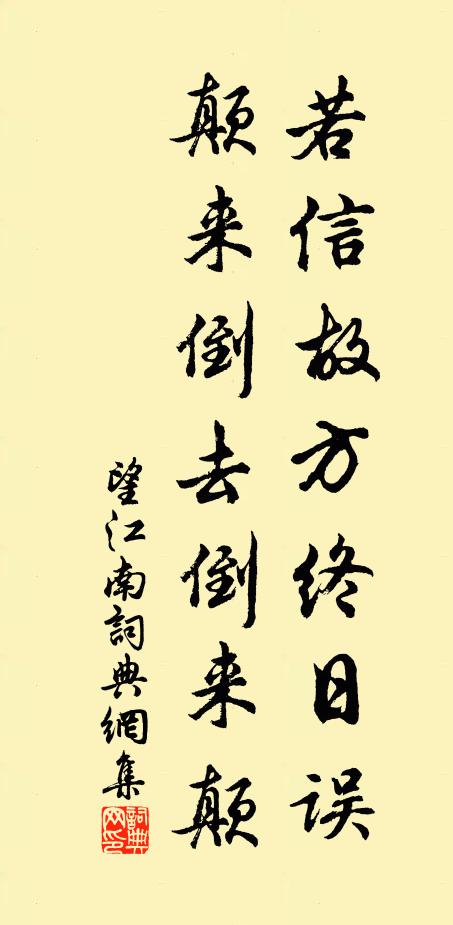 若信故方终日误
颠来倒去倒来颠
望江南詞典網集
詞典网印